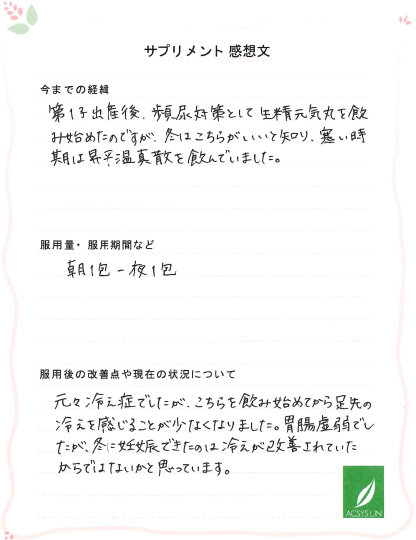 サプリメント 感想文
今までの経緯
第1子出産後、頻尿対策として生精元気丸を飲
み始めたのですが、冬はこちらがいいと知り、寒い時
期は昇平温真散を飲んでいました。
服用量・服用期間など
朝1包 – 夜1包
服用後の改善点や現在の状況について
元々冷え症でしたが、こちらを飲み始めてから足先の
冷えを感じることが少なくなりました。胃腸虚弱でし
たが、冬に妊娠できたのは冷えが改善されていた
からではないかと思っています。
ACSYS UNI